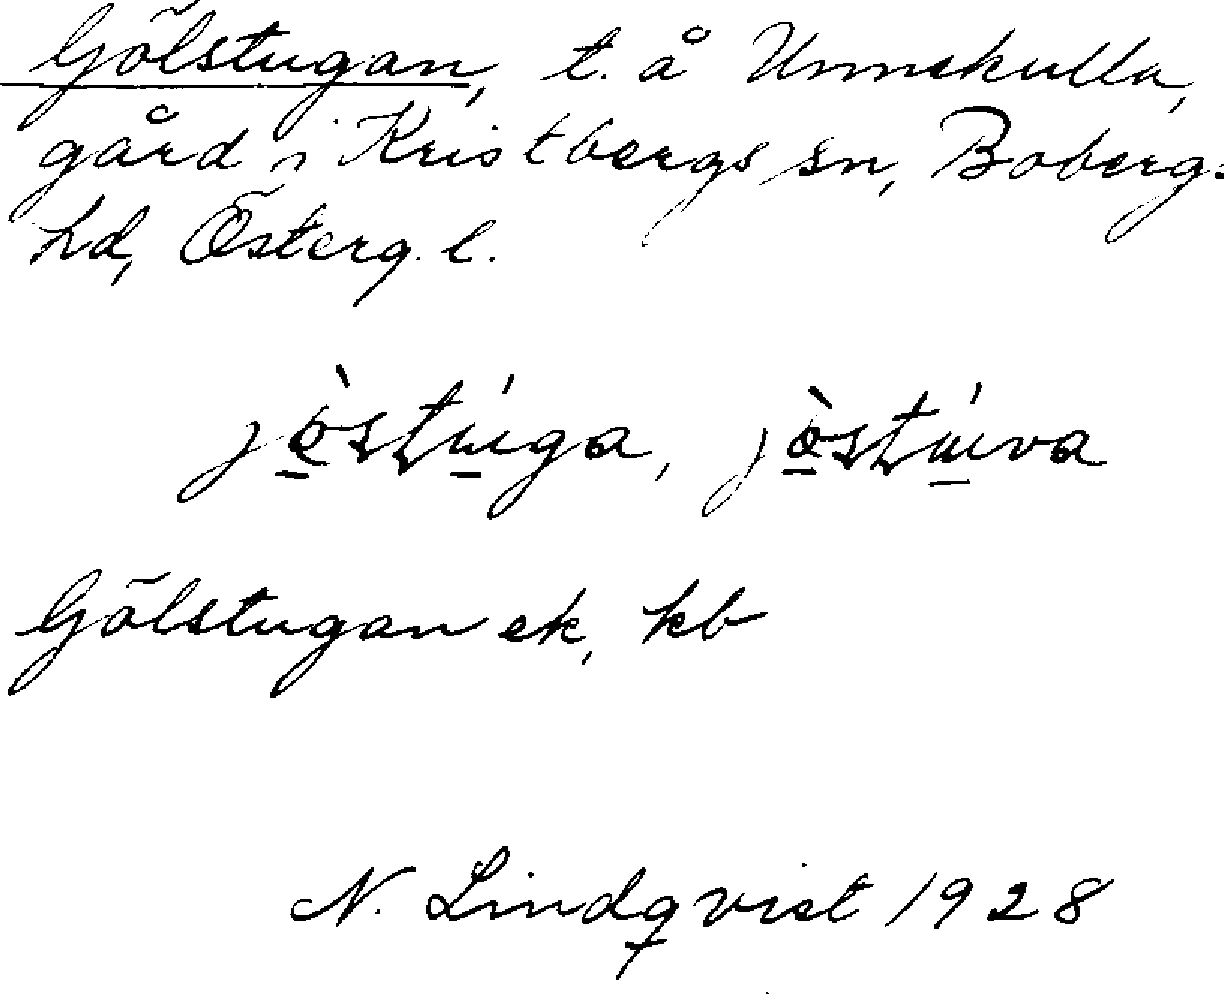 Gölstugan, t. å Unnekulla,
gård i Kristbergs sn, Bobergs
hd, Österg. l.
jö̀stúga, jö̀stúva
Gölstugan ek, kb
N. Lindqvist 1928